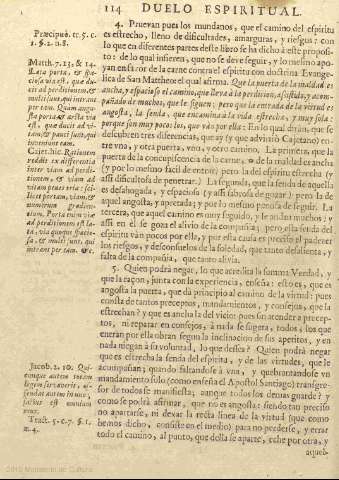 114 DUELO ESPIRITUAL.
4. Pruevan pues los mundanos, que el camino del espiritu
es estrecho, lleno de dificultades, amarguras, y riesgos: con
lo que en diferentes partes deste libro se ha dicho à este proposi-
to: de lo qual infieren, que no se deve seguir, y lo mesmo apo-
yan en favor de la carne contra el espiritu con doctrina Evange-
lica de San Mattheo el qual afirma. Que la puerta de la maldad es
ancha, y espacioso el camino, que lleva à la perdicion,
que se siguen; pero que la entrada de la virtud es
angosta, la senda, que encamina à la vida estrecha, y muy sola:
porque son muy pocos los, que van por ella: En lo qual dizen, que se
descubren tres diferencias, que ay (y que advirtiò Cajetano) en-
tre vno, y otra puerta, vno, y otro camino. La primera, que la
puerta de la concupiscencia de la carne, ò de la maldad es ancha
(y por lo mesmo facil de entrar) pero la del espiritu estrecha (y
assi dificultosa de penetrar.) La segunda, que la senda de aquella
es desahogada, y espaciosa (y assi sabrosa de gozar) pero la de
aquel angosta, y apretada; y por lo mesmo penosa de seguir. La
tercera, que aquel camino es muy seguido, y le andan muchos: y
assi en èl se goza el alivio de la compañia; pero esta senda del
espiritu van pocos por ella, y por esta causa es preciso el padecer
los riesgos, y desconsuelos de la soledad, que tanto desalienta, y
falta de la compañia, que tanto alivia.
5. Quien podrà negar, lo que acredita la summa Verdad, y
que la razon, junta con la experiencia, enseña: esto es, que es
angosta la puerta, que dà principio al camino de la virtud: pues
consta de tantos preceptos, mandamientos, y consejos, que la
estrechan? y que es ancha la del vicio: pues sin atender a precep-
tos, ni reparar en consejos, à nada se sugeta, todos los que
entran por ella obran segun la inclinacion de sus apetitos, y en
nada niegan à su voluntad, lo que dessea? Quien podrà negar
que es estrecha la senda del espiritu, y de las virtudes, que le
acompañan; quando faltandose à vna, y quebrantandose vn
mandamiento solo (como enseña el Apostol Santiago) transgre-
sor de todos se manifiesta, aunque todos los demas guarde? y
como se podrà afirmar, que no es angosta: siendo tan preciso
no apartarse, ni devar la recta linea de la virtud (que como
hemos dicho, consiste en el medio) para no perderse, y errar
todo el camino, al punto, que della se aparte, eche por otra, y
aqueb-
Præcipuè. tr. 5. c.
1. §. 2. n. 8.
Matth. 7. 13. & 14.
Lata porta, & spa-
ciosa via est, quæ du-
cit ad perditionem, &
multi sunt, qui intrant
per eam. Quàm angu-
sta porta, & arcta via
est, quæ ducit ad vi-
tam, & pauci sunt, qui
inveniunt eam.
Cajet. hic. Rationem
reddit ex differentia
inter viam ad perdi-
tionem, & viam ad
vitam
licet portam, viam, &
numerum
Porta enim viæ
ad perditionem est la-
ta, via quoque spatio-
sa, & multi sunt, qui
intrant per eam, &c.
Jacob. 2. 10. Qui-
cumque autem totam
legem servaverit, of-
fendat autem in uno,
factus est omnium
reus.
Tract. 5. c. 7. §. 1.
n. 4.
2010 Ministerio de Cultura